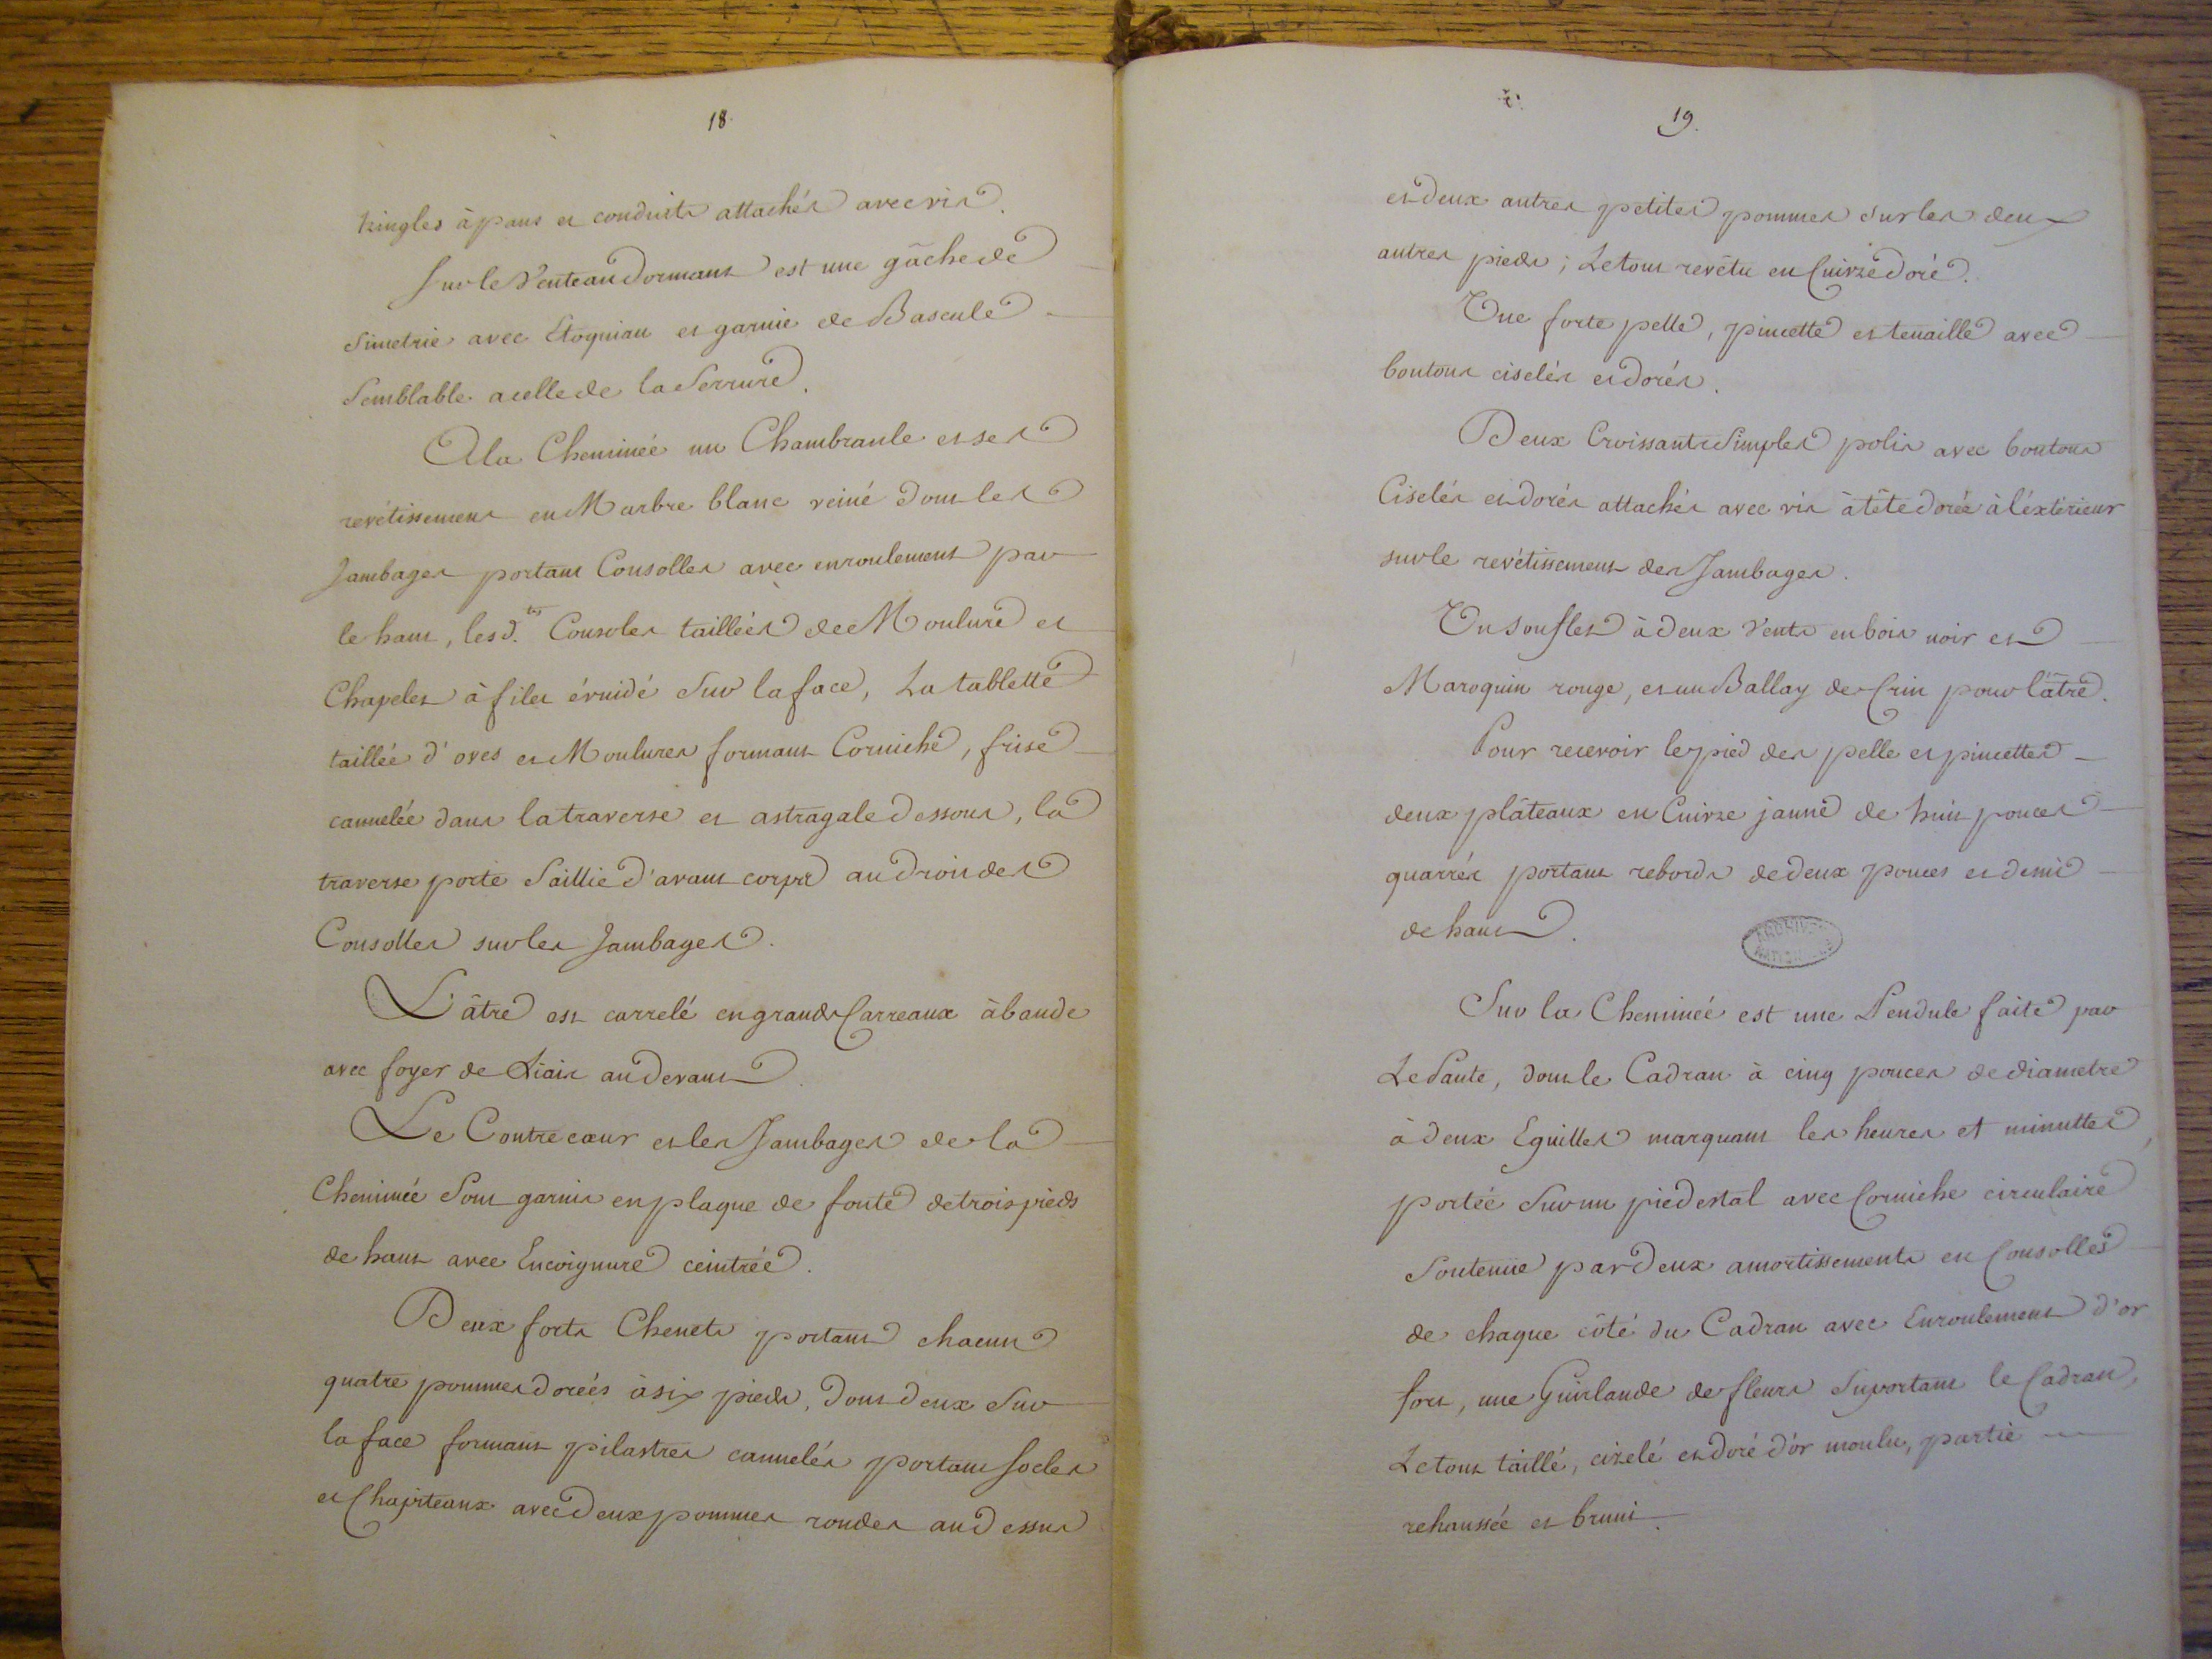 18.
tringles à pans et conduits attachés avec vis.
Sur le Venteau dormant est une gâche de
Simetrie avec Etoquiau et garnie de Bascule
Semblable acelle de la Serrure.
A la Cheminée un Chambranle et ses
revétissemens en Marbre blanc veiné dont les
Jambages portant Consolles avec enroulement par
le haut, les d.tes Consoles taillées de Moulure et
Chapelet à filet évuidé Sur la face, La tablette
taillée d'oves et Moulures formant Corniche, frise
cannelée dans la traverse et astragale dessous, la
traverse porte Saillie d'avant corps au droit des
Consolles sur les Jambages.
L'âtre est carrelé en grands Carreaux à bande
avec foyer de Liais au devant.
Le Contrecœur et les Jambages de la
Cheminée Sont garnis en plaque de fonte de trois pieds
de haut avec Encoignure ceintrée.
Deux forts Chenets portant chacun
quatre pommes dorées à six pieds, dont deux Sur
la face formant pilastres cannelés portant Socles
et Chapiteaux avec deux pommes rondes au dessus
19.
et deux autres petites pommes sur les deux
autres pieds; Le tout revêtu en Cuivre doré.
Une forte pelle, pincette et tenaille avec
boutons ciselés et dorés.
Deux Croissants Simples polis avec boutons
Ciselés et dorés attachés avec vis à tête dorée à l'éxterieur
sur le revétissement des Jambages.
Un Souflet à deux Vents en bois noir et
Maroquin rouge, et un Ballay de Crin pour l'âtre.
Pour recevoir le pied des pelle et pincettes
deux plâteaux en Cuivre jaune de huit pouces
quarrés portant rebords de deux pouces et demi
de haut.
ARCHIVES
NATIONALES
Sur la Cheminée est une Pendule faite par
LePaute, dont le Cadran à cinq pouces de diametre
à deux Eguilles marquant les heures et minuttes,
portée Sur un piedestal avec Corniche circulaire
Soutenüe par deux amortissements en Consolles
de chaque côté du Cadran avec Enroulement d'or
fort, une Guirlande de fleurs Suportant le Cadran,
Le tout taillé, cizelé et doré d'or moulu, partie
rehaussée et bruni.